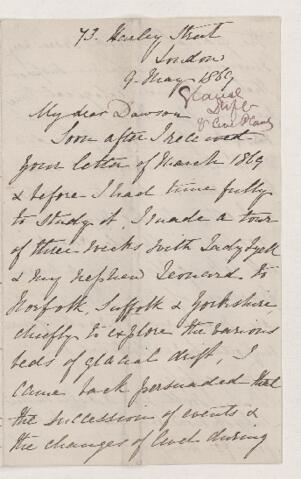 73. Harley Street
London
9. May 1869
Glacial
Drift
& Cave
My dear Dawson
Soon after I received
your letter of March 1869
& before I had time fully
to study it, I made a tour
of three weeks with Lady Lyell
& my nephew Leonard to
Norfolk, Suffolk & Yorkshire
chiefly to explore the various
beds of glacial drift, I
came back persuaded that
the succession of events &
the changes of level during